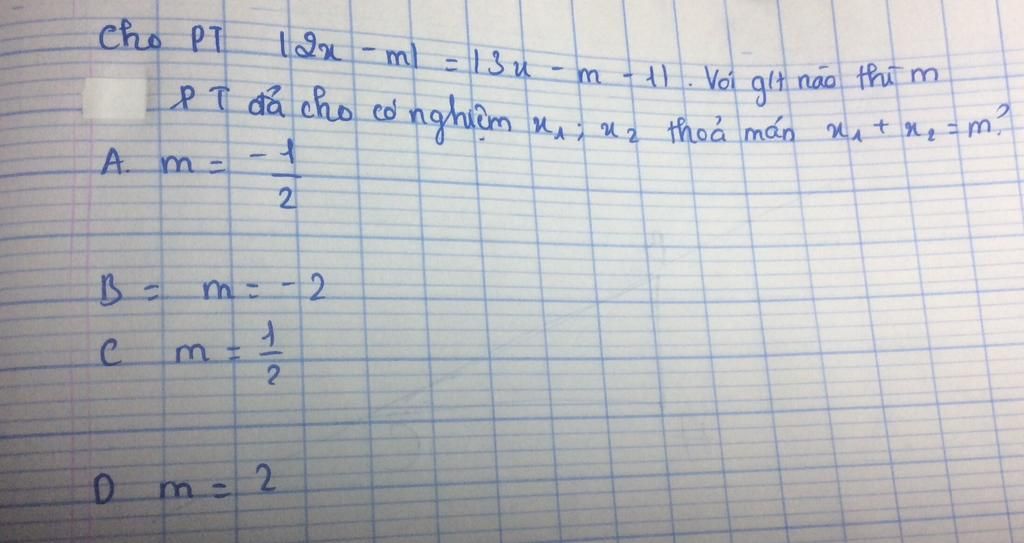 Cho PT |2x - m| = |3x - m - 1|. Với gt nào thì m
PT đã cho có nghiệm x₁; x₂ thoả mán x₁ + x₂ = m?
A. m = -1/2
B = m = -2
C m = 1/2
D m = 2